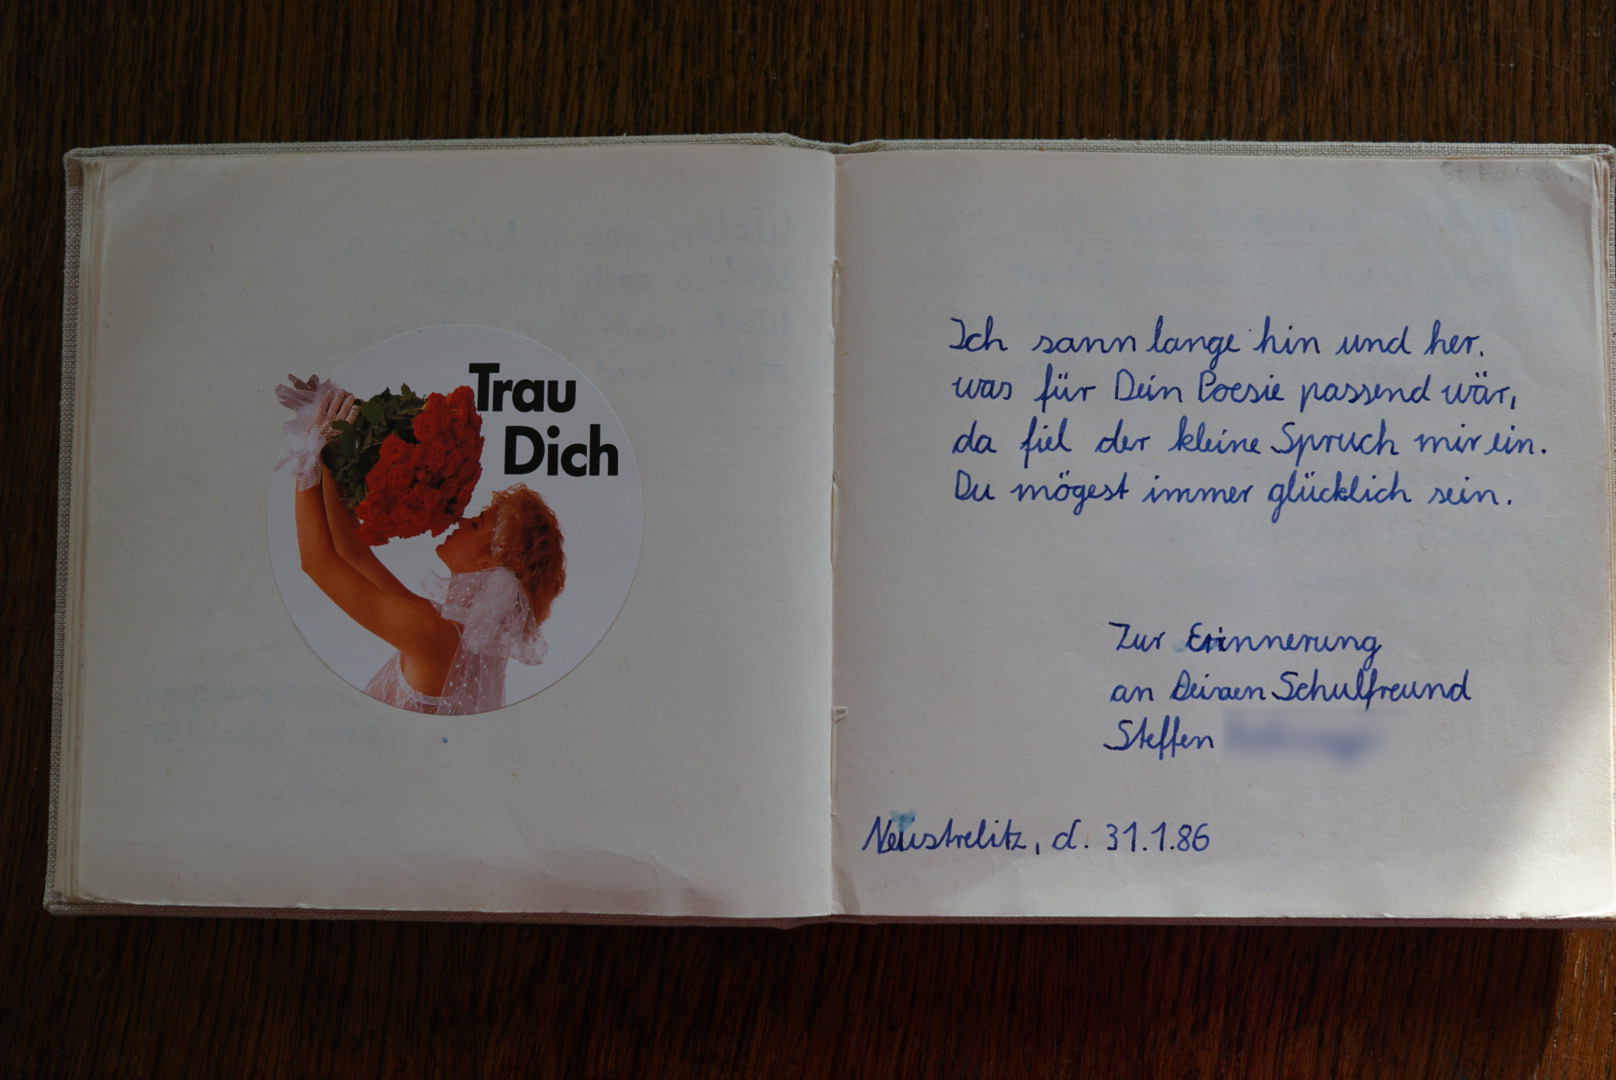 Trau
Dich
Ich sann lange hin und her.
was für Dein Poesie passend wär,
da fiel der kleine Spruch mir ein.
Du mögest immer glücklich sein.
Zur Erinnerung
an Deinen Schulfreund
Steffen
Neustrelitz, d. 31.1.86